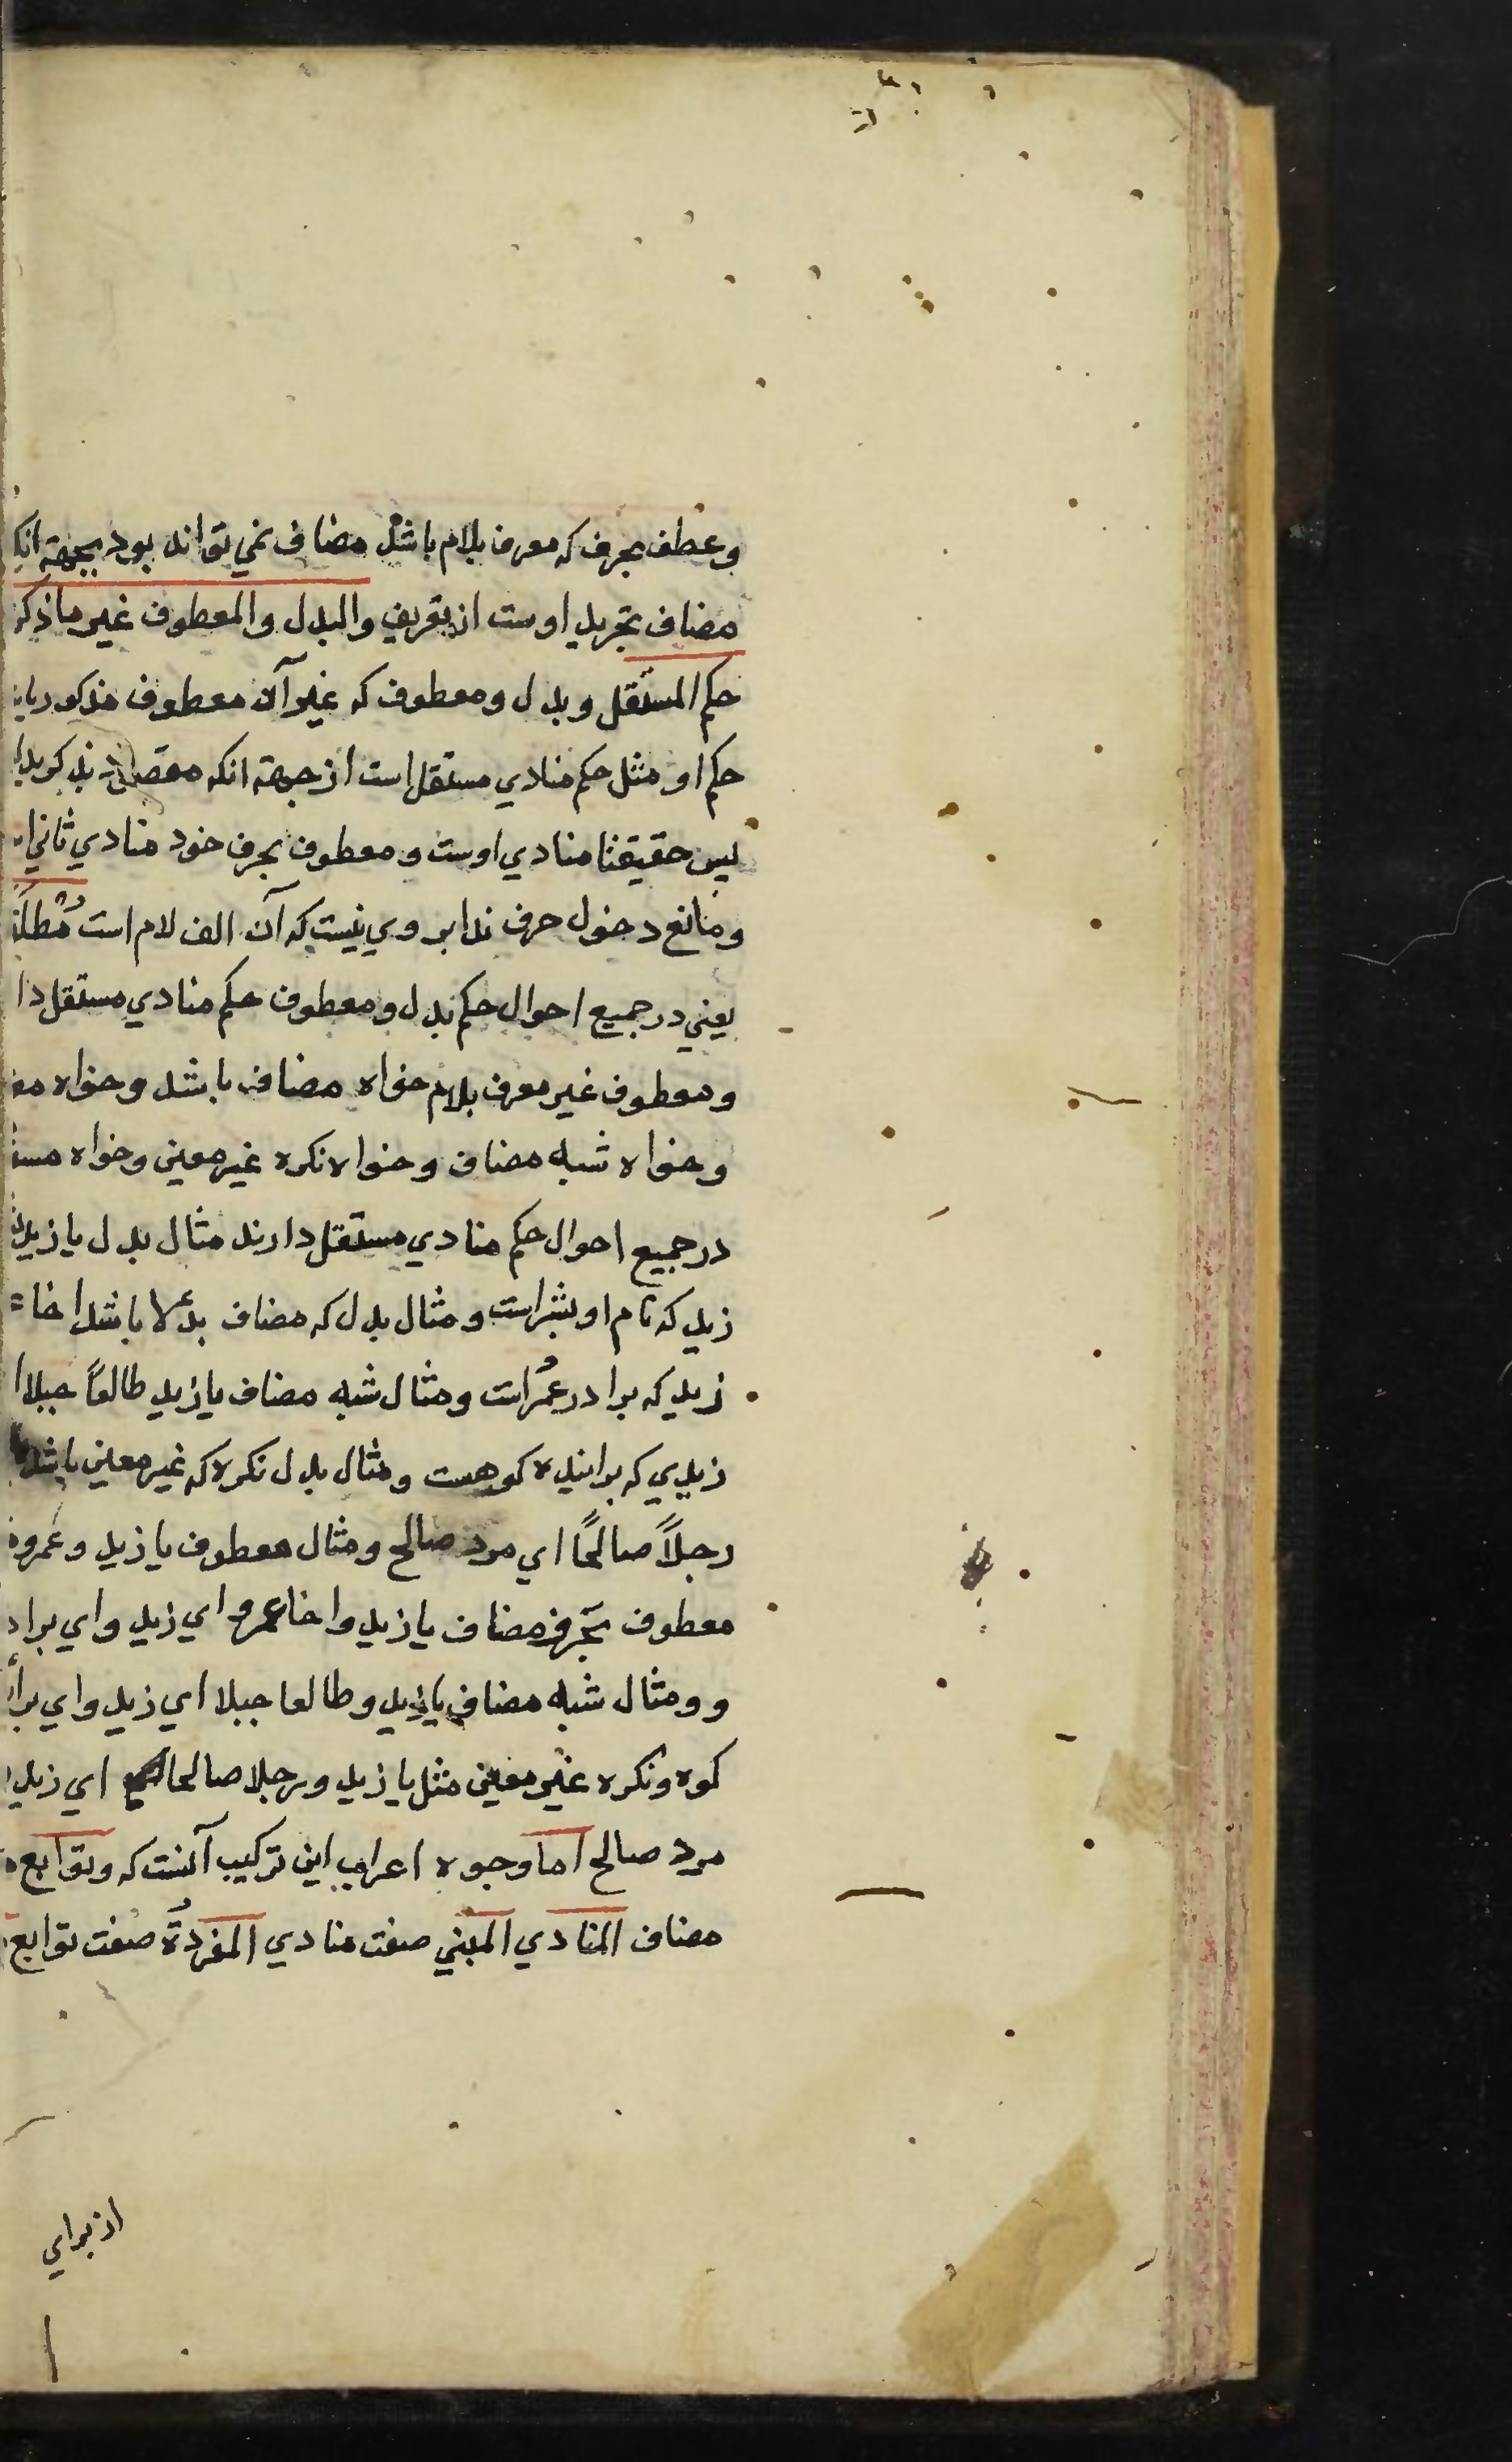 وعطف بحرف که معرف بلام باشد مضاف نمي تواند بود بجهة انکه
مضاف تجريد اوست از تعريف والبدل والمعطوف غير ما ذکر
حکم المستقل وبدل ومعطوف که غير آن معطوف مذکور
حکم او مثل حکم منادي مستقل است از جهة انکه
پس حقيقتا منادي اوست ومعطوف بحرف خود منادي ثاني
ومانع دخول حرف ندا بر وي نيست که آن الف لام است مطلقا
يعني در جميع احوال حکم بدل ومعطوف حکم منادي مستقل
ومعطوف غير معرف بلام خواه مضاف باشد وخواه
وخواه شبه مضاف وخواه نکره غير معين وخواه
در جميع احوال حکم منادي مستقل دارند مثال بدل يا زيد
زيد که نام او بشر است ومثال بدل که مضاف باشد اخا
زيد که برادر عمر است ومثال شبه مضاف يا زيد طالعاً جبلا
زيدي که برايندهٔ کوهست ومثال بدل نکره که غير معين باشد
رجلاً صالحاً اي مرد صالح ومثال معطوف يا زيد وعمرو
معطوف بحرف مضاف يا زيد واخا عمرو اي زيد واي براد
و ومثال شبه مضاف يا زيد وطالعا جبلا اي زيد واي
کوه ونکره غير معين مثل يا زيد ورجلا صالحا اي زيد
مرد صالح اما وجوه اعراب اين ترکيب آنست که وتوابع
مضاف المنادي المبني صفت منادي المفردة صفت توابع
از براي